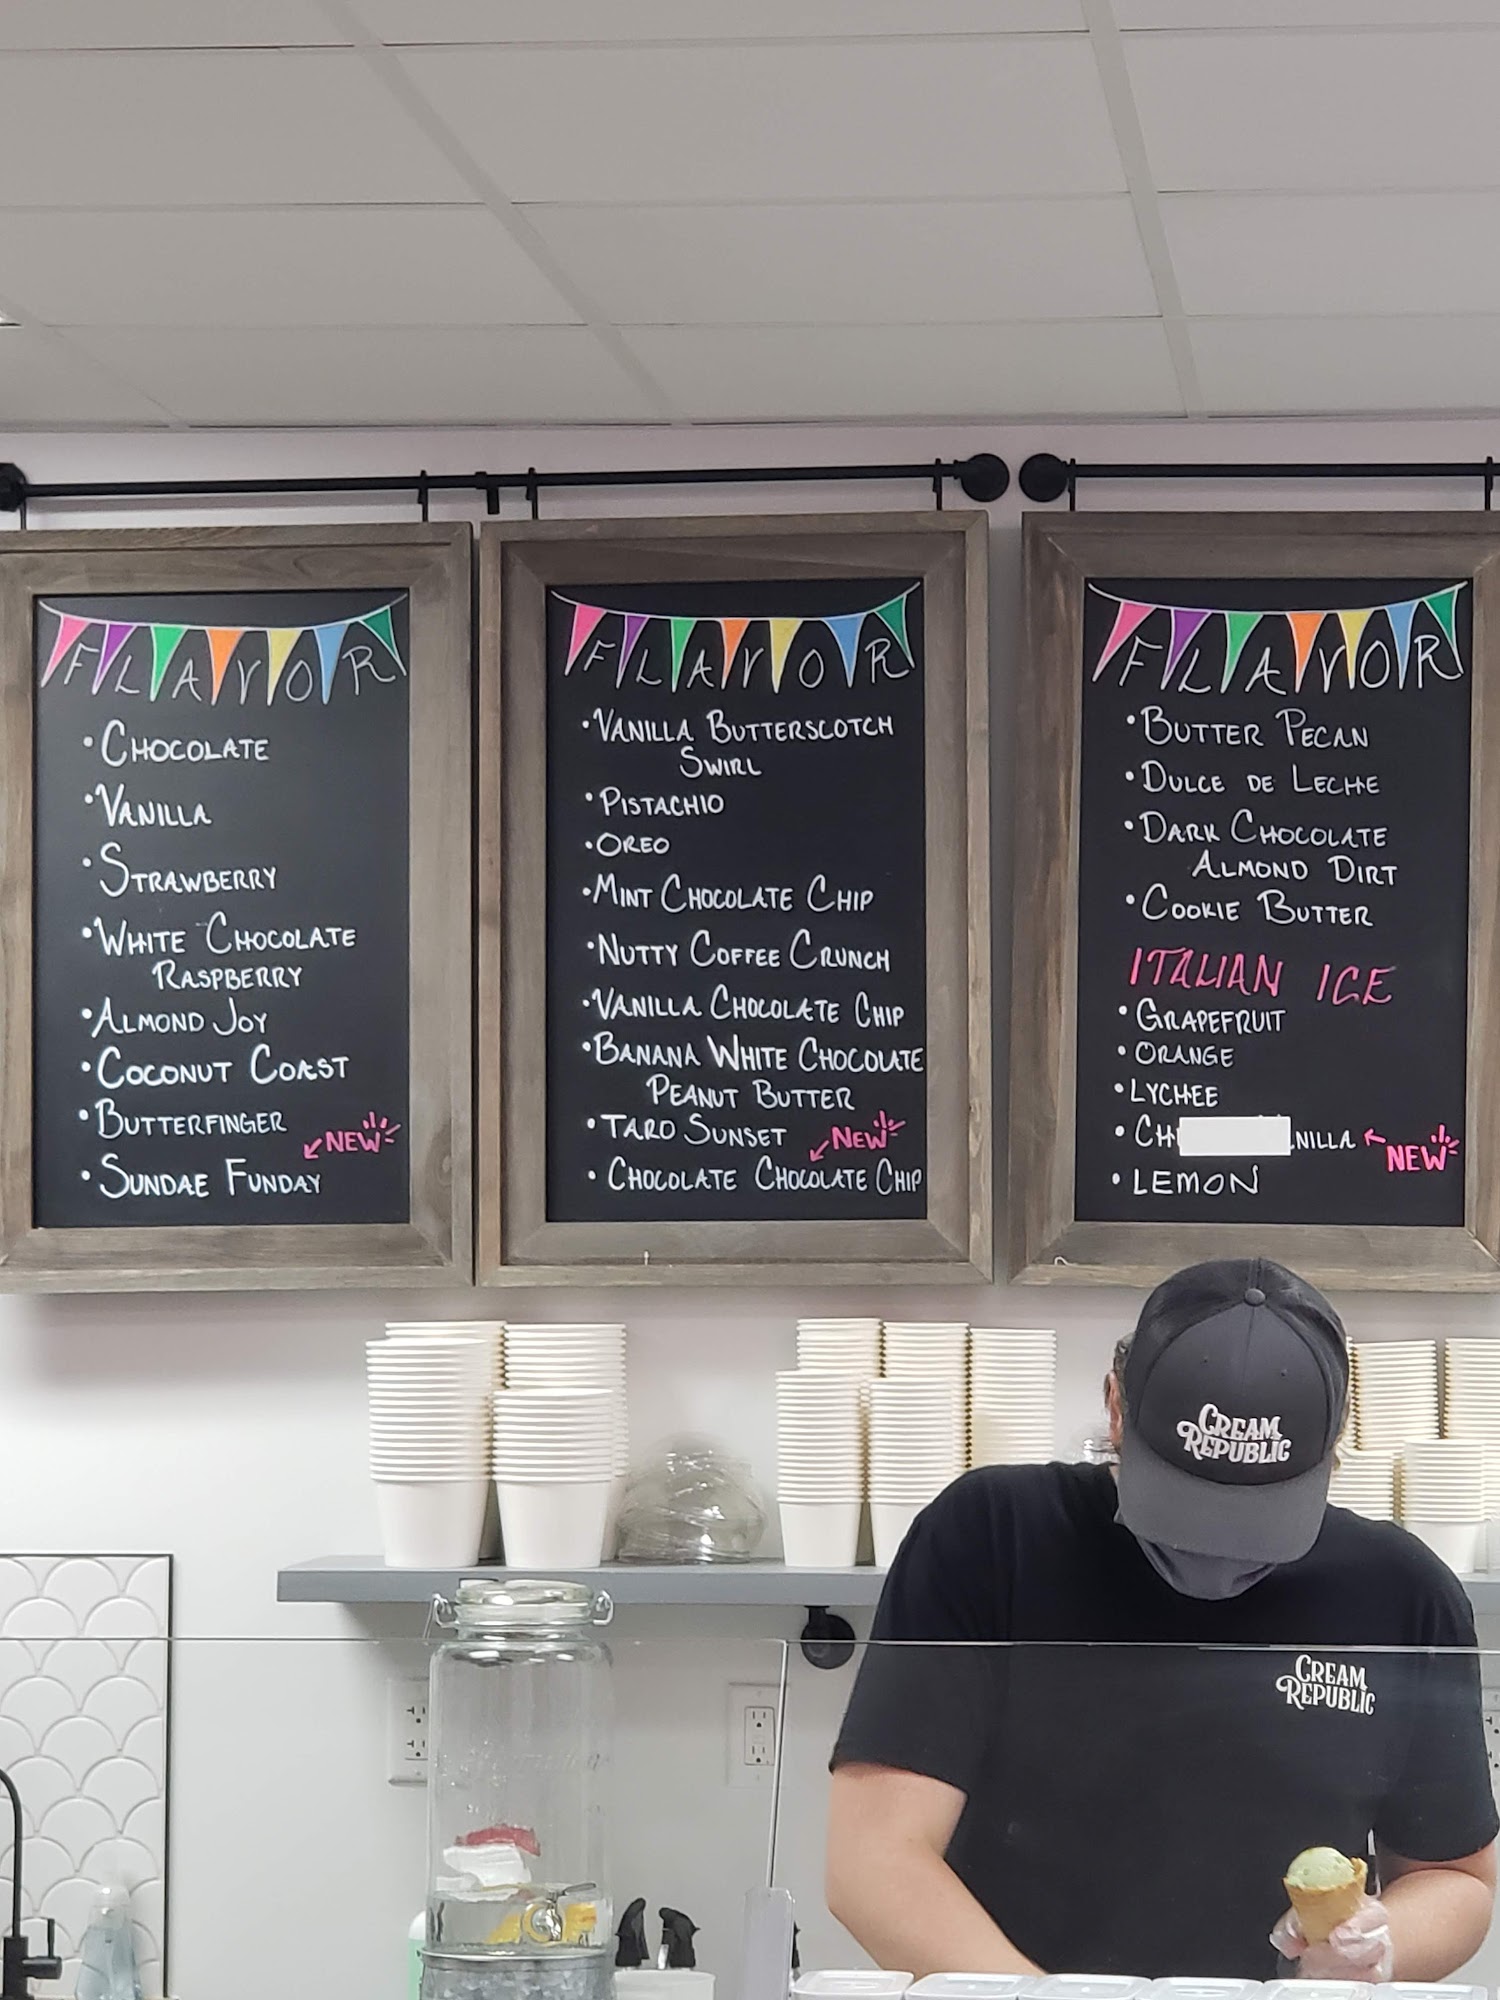 FLAVOR
• CHOCOLATE
• VANILLA
• STRAWBERRY
• WHITE CHOCOLATE
RASPBERRY
• ALMOND JOY
• COCONUT COAST
• BUTTERFINGER
NEW
• SUNDAE FUNDAY
FLAVOR
• VANILLA BUTTERSCOTCH
SWIRL
• PISTACHIO
• OREO
• MINT CHOCOLATE CHIP
• NUTTY COFFEE CRUNCH
• VANILLA CHOCOLATE CHIP
• BANANA WHITE CHOCOLATE
PEANUT BUTTER
• TARO SUNSET
NEW
• CHOCOLATE CHOCOLATE CHIP
FLAVOR
• BUTTER PECAN
• DULCE DE LECHE
• DARK CHOCOLATE
ALMOND DIRT
• COOKIE BUTTER
ITALIAN ICE
• GRAPEFRUIT
• ORANGE
• LYCHEE
•
NEW
• LEMON
CREAM
REPUBLIC
CREAM
REPUBLIC